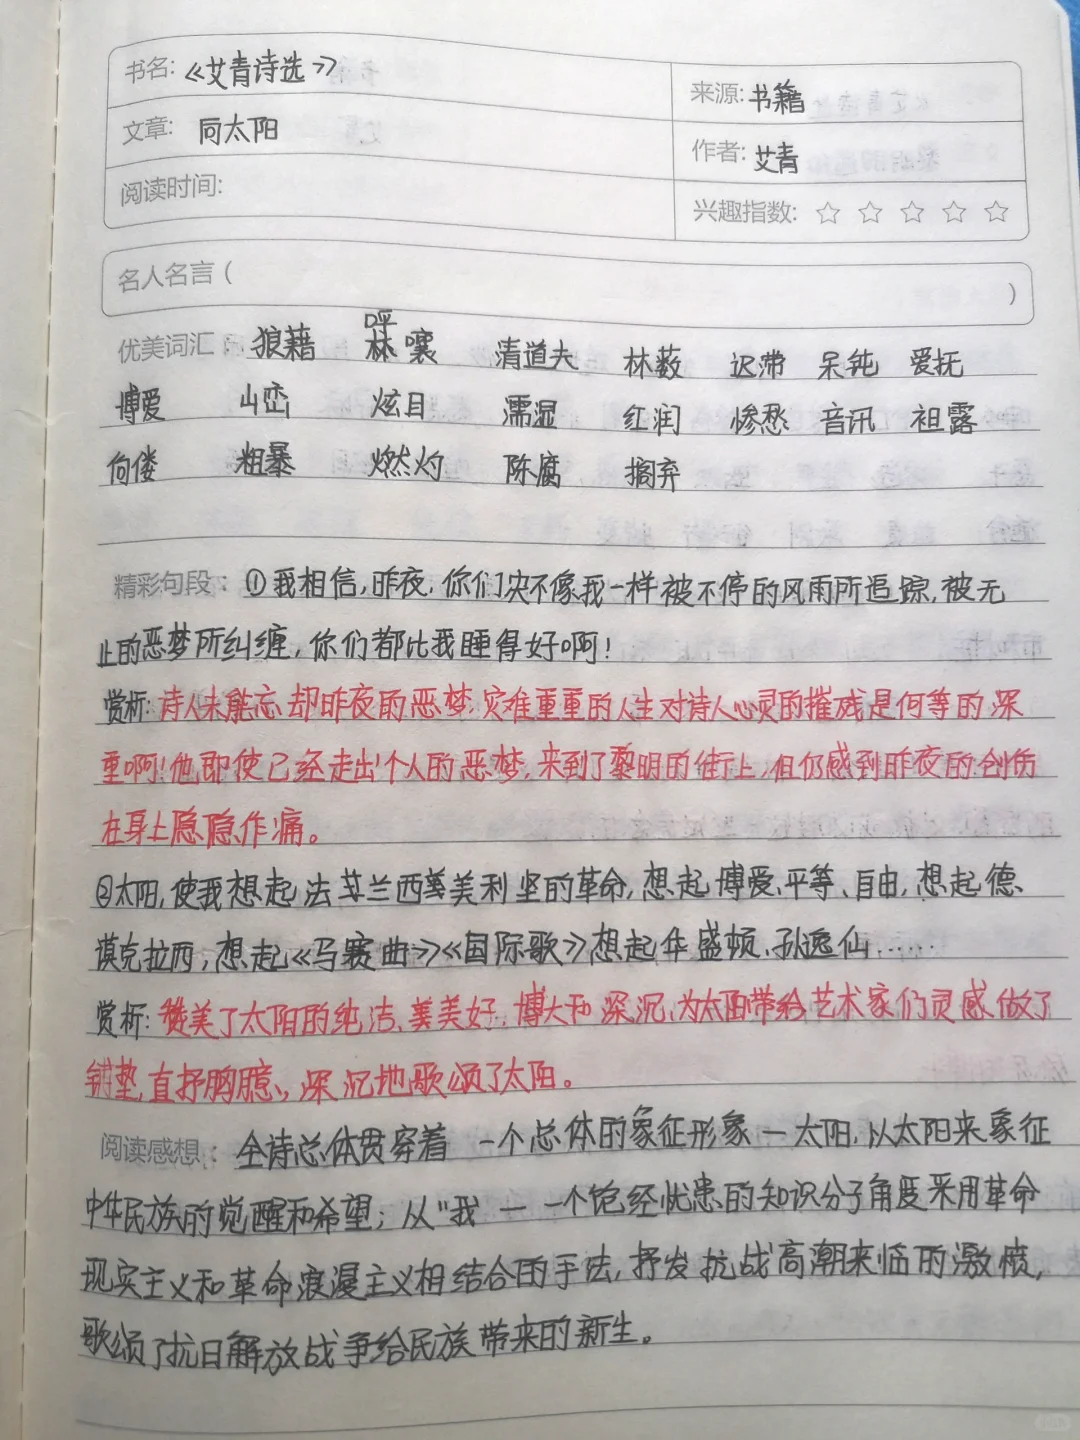 书名: 《艾青诗选》
来源: 书籍
文章: 向太阳
作者: 艾青
阅读时间:
兴趣指数: ☆ ☆ ☆ ☆ ☆
名人名言 ( )
优美词汇: 狼藉 呼嚷 清道夫 林薮 迟滞 呆钝 爱抚
博爱 山峦 炫目 濡湿 红润 惨愁 音讯 袒露
佝偻 粗暴 燃灼 陈腐 搁弃
精彩句段: ①我相信,昨夜,你们决不像我一样被不停的风雨所追踪,被无
止的恶梦所纠缠,你们都比我睡得好啊!
赏析: 诗人未能忘却昨夜的恶梦,灾难重重的人生对诗人心灵的摧残是何等的深
重啊!他即使已经走出个人的恶梦,来到了黎明的街上,但仍感到昨夜的创伤
在身上隐隐作痛。
②太阳,使我想起法兰西美利坚的革命,想起博爱、平等、自由,想起德、
谟克拉西,想起《马赛曲》《国际歌》想起华盛顿、孙逸仙……
赏析: 赞美了太阳的纯洁、美好、博大和深沉,为太阳带给艺术家们灵感做了
铺垫,直抒胸臆,深沉地歌颂了太阳。
阅读感想: 全诗总体贯穿着 一个总体的象征形象—太阳,以太阳来象征
中华民族的觉醒和希望; 从"我 — 一个饱经忧患的知识分子角度采用革命
现实主义和革命浪漫主义相结合的手法,抒发抗战高潮来临的激愤,
歌颂了抗日解放战争给民族带来的新生。